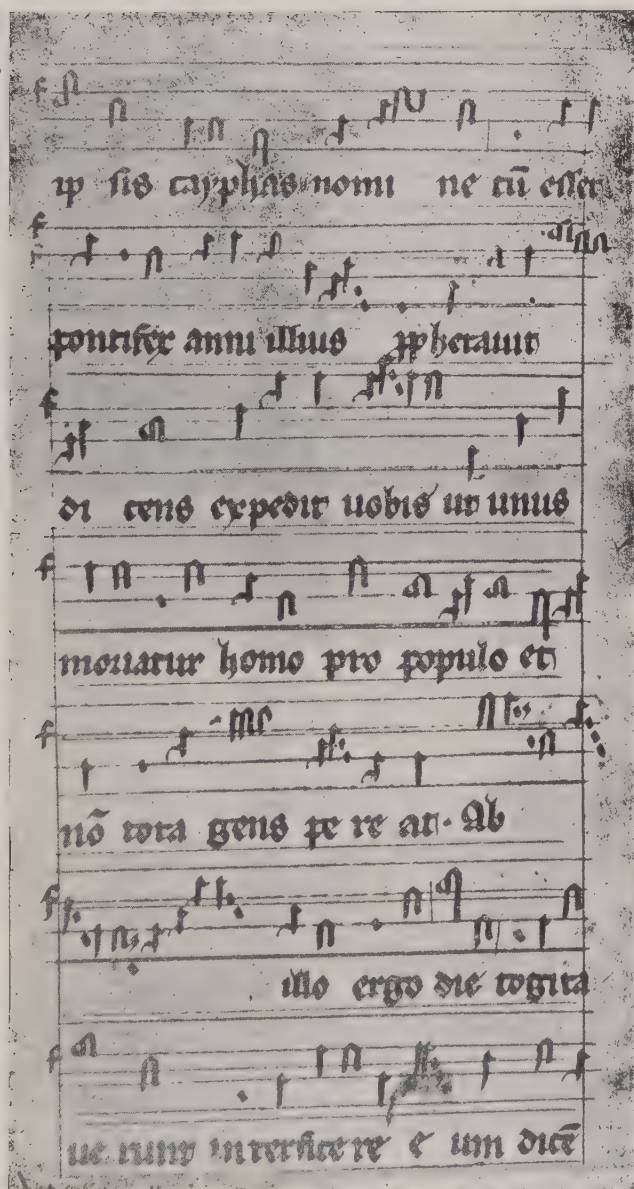 ip sis cayphas nomi ne cū esset
pontifex anni illius ꝓphetauit
di cens expedit uobis ut unus
moriatur homo pro populo et
nō tota gens pe re at. Ab
illo ergo die cogita
ue runt interfice re e um dicē